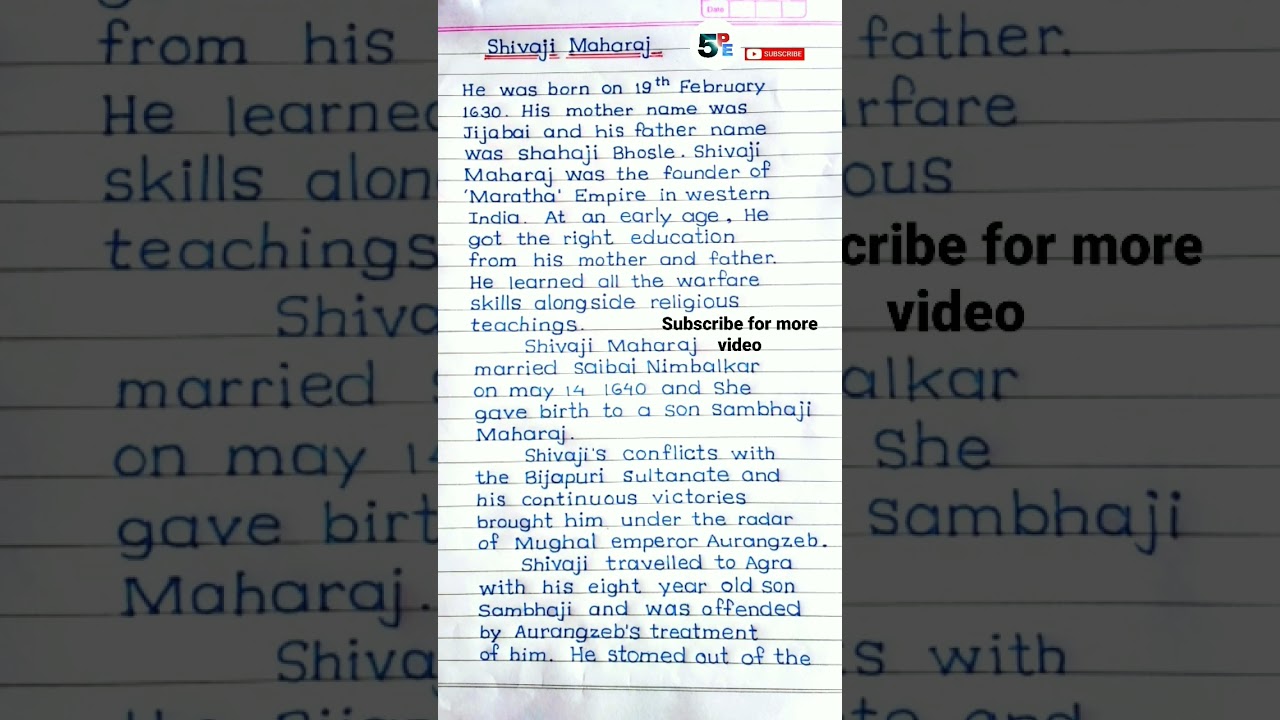 Date
Shivaji Maharaj
5PE
SUBSCRIBE
He was born on 19th February
1630. His mother name was
Jijabai and his father name
was shahaji Bhosle. Shivaji
Maharaj was the founder of
'Maratha' Empire in western
India. At an early age, He
got the right education
from his mother and father.
He learned all the warfare
skills alongside religious
teachings.
Subscribe for more
video
Shivaji Maharaj
married saibai Nimbalkar
on may 14 1640 and She
gave birth to a son Sambhaji
Maharaj.
Shivaji's conflicts with
the Bijapuri Sultanate and
his continuous victories
brought him under the radar
of Mughal emperor Aurangzeb.
Shivaji travelled to Agra
with his eight year old son
Sambhaji and was offended
by Aurangzeb's treatment
of him. He stomed out of the
from his
father.
He learned
rfare
skills alon
ous
teachings
cribe for more
video
Shiva
married
alkar
on may 14
She
gave birt
sambhaji
Maharaj.
Shiva
s with